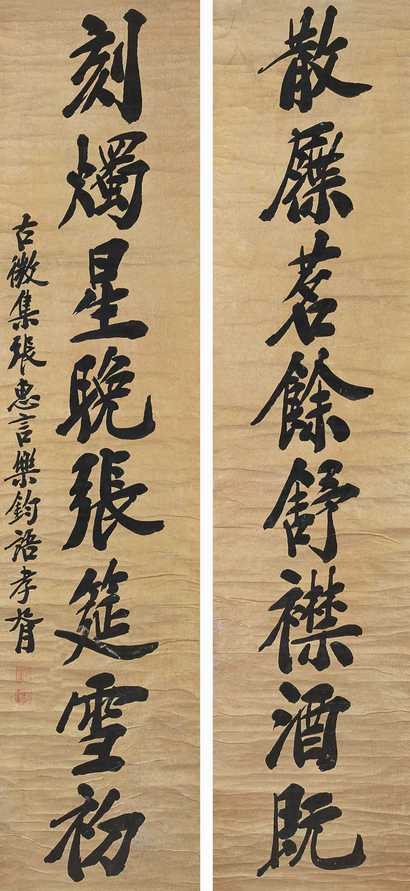 散屧茗餘舒襟酒既
刻燭星晚張筵雪初
古微集張惠言樂鈞語孝胥